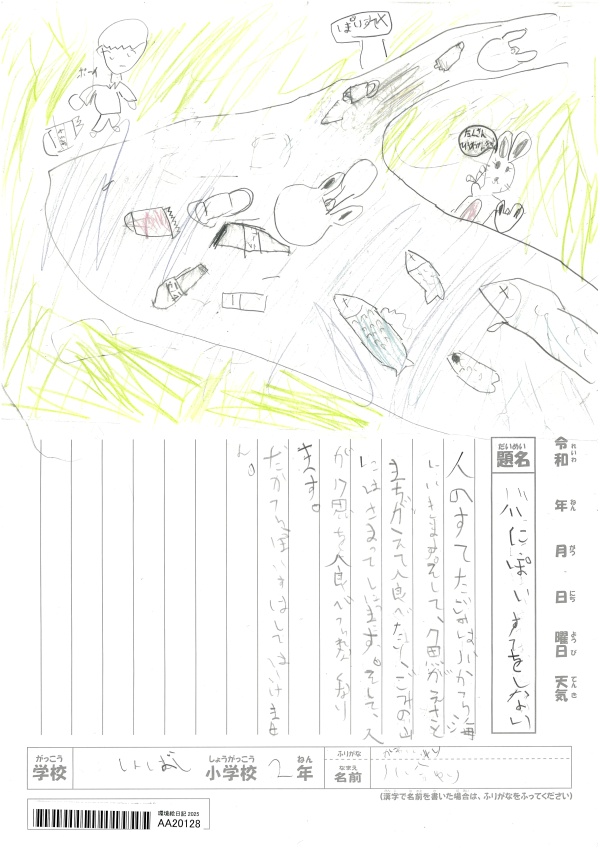 ぽいすて
ポーイ
たんさん
令和 れいわ
年 ねん
月 がつ
日 にち
曜日 ようび
天気 てんき
題名 だいめい
川にぽいすてをしない
人のすてたごみは川から海
にいきます。そして、魚がえさと
まちがえて食べたり、ごみの山
にはさまってしにます。そして、人
が魚を食べられなくなり
ます。
だからぽいすてはしてはいけませ
ん。
学校 がっこう
小学校 しょうがっこう
2年 ねん
ふりがな
名前 なまえ
(漢字で名前を書いた場合は、ふりがなをふってください)
環境絵日記 2025
AA20128